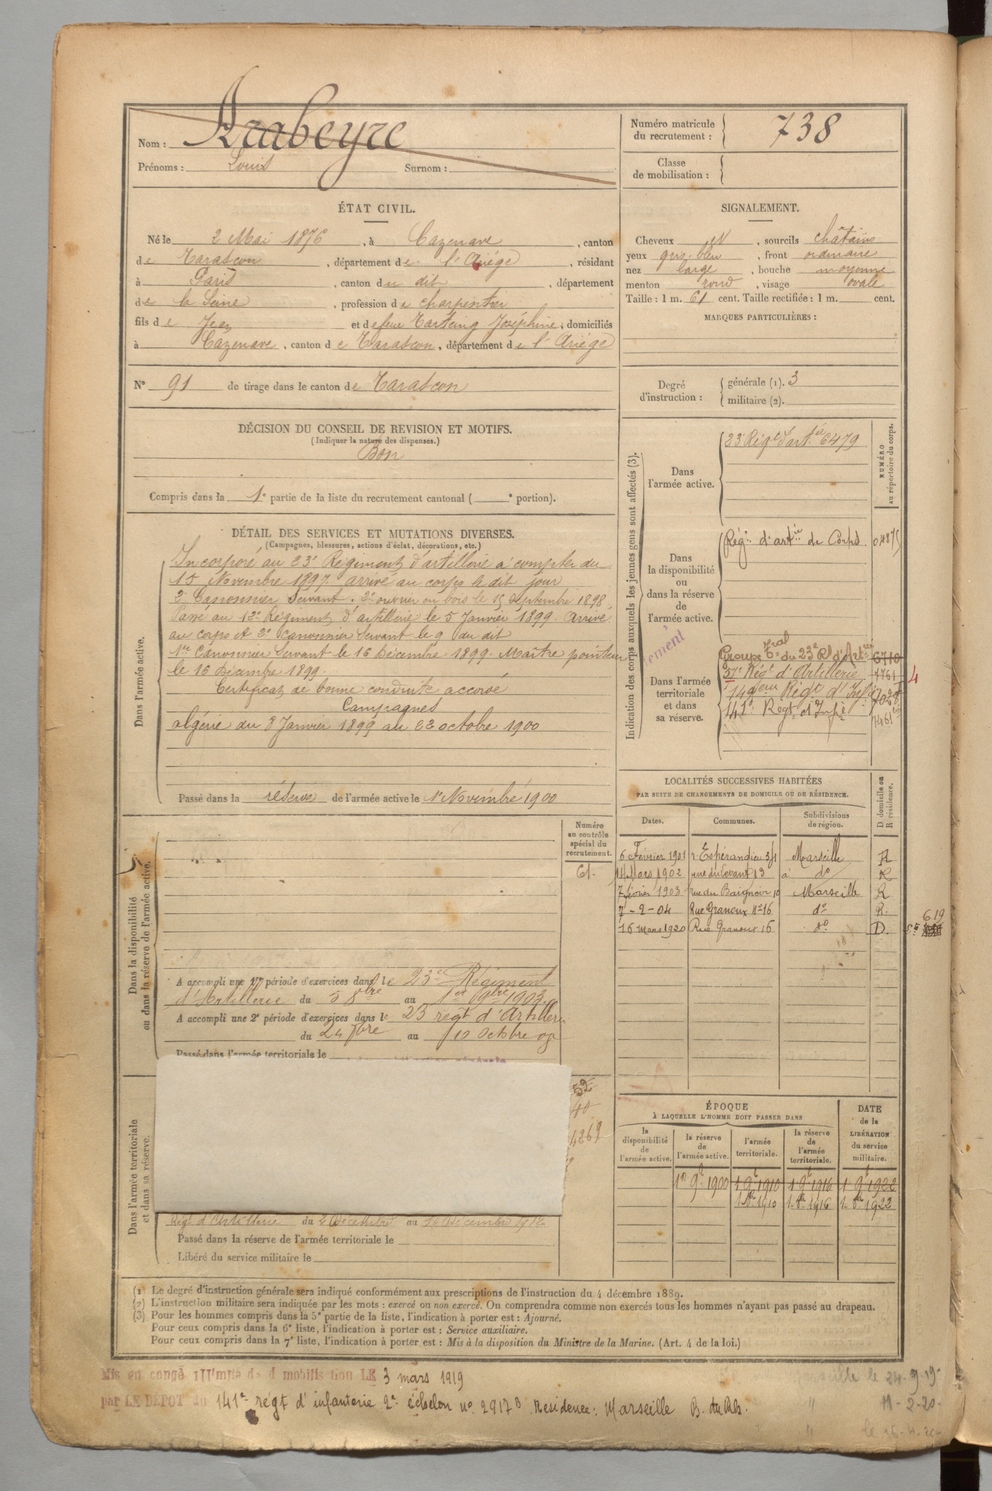 Nom : Arabeyre
Prénoms : Louis Surnom :
Numéro matricule du recrutement : 738
Classe de mobilisation :
ÉTAT CIVIL.
Né le 2 Mai 1876, à Cazenave, canton
de Tarascon, département de l'Ariège, résidant
à Paris, canton du dit, département
de la Seine, profession de charpentier
fils de Jean et de feue Joséphine, domiciliés
à Cazenave, canton de Tarascon, département de l'Ariège
N° 91 de tirage dans le canton de Tarascon
SIGNALEMENT.
Cheveux et, sourcils châtains
yeux gris bleu, front ordinaire
nez large, bouche moyenne
menton rond, visage ovale
Taille : 1 m. 61 cent. Taille rectifiée : 1 m. cent.
MARQUES PARTICULIÈRES :
Degré d'instruction : générale (1). 3
militaire (2).
DÉCISION DU CONSEIL DE REVISION ET MOTIFS.
(Indiquer la nature des dispenses.)
Bon
Compris dans la 1e partie de la liste du recrutement cantonal ( e portion).
DÉTAIL DES SERVICES ET MUTATIONS DIVERSES.
(Campagnes, blessures, actions d'éclat, décorations, etc.)
Dans l'armée active.
Incorporé au 23e Régiment d'artillerie à compter du
15 Novembre 1897 arrivé au corps le dit jour
2e Canonnier Servant. 2e ouvrier en bois le 15 Septembre 1898.
Passé au 12e Régiment d'artillerie le 5 Janvier 1899. Arrivé
au corps et 2e Canonnier Servant le 9 du dit
1er Canonnier Servant le 16 Décembre 1899. Maître pointeur
le 16 décembre 1899.
Certificat de bonne conduite accordé
Campagnes
Algérie du 8 Janvier 1899 au 22 octobre 1900
Passé dans la réserve de l'armée active le 1er Novembre 1900
Indication des corps auxquels les jeunes gens sont affectés (3).
NUMÉRO au répertoire du corps.
Dans l'armée active.
23e Régt d'artie 6479
Dans la disponibilité ou dans la réserve de l'armée active.
Régt d'artie de Corps
Dans l'armée territoriale et dans sa réserve.
Groupe Tral du 23e Rt d'Artie 6710
37e Régt d'Artillerie
149eme Régt d'Infie
141e Régt d'Infie
LOCALITÉS SUCCESSIVES HABITÉES
PAR SUITE DE CHANGEMENTS DE DOMICILE OU DE RÉSIDENCE.
Dates. Communes. Subdivisions de région. D domicile ou R résidence.
6 Février 1901 r. Espérandieu Marseille R
14 Mars 1902 rue du Levant 13 à do R
7 février 1903 rue du Baignoir 10 Marseille R
7-2-04 Rue Granoux no 16 do R.
16 Mars 1920 Rue Granoux 16 do D.
619
Numéro au contrôle spécial du recrutement.
Dans la disponibilité ou dans la réserve de l'armée active.
A accompli une 1re période d'exercices dans le 23e Régiment
d'Artillerie du 5 8bre au 1er 9bre 1903
A accompli une 2e période d'exercices dans le 23 régt d'Artillerie
du 24 7bre au 10 Octobre 09
Passé dans l'armée territoriale le
Dans l'armée territoriale et dans sa réserve.
Régt d'Artillerie du 2 Décembre au 10 Décembre 1912
Passé dans la réserve de l'armée territoriale le
Libéré du service militaire le
ÉPOQUE
À LAQUELLE L'HOMME DOIT PASSER DANS
DATE de la LIBÉRATION du service militaire.
la disponibilité de l'armée active. la réserve de l'armée active. l'armée territoriale. la réserve de l'armée territoriale.
1er 9e 1900 1 9e 1910 1 9e 1916 1 9e 1922
1 8e 1910 1 8e 1916 1 8e 1922
(1) Le degré d'instruction générale sera indiqué conformément aux prescriptions de l'instruction du 4 décembre 1889.
(2) L'instruction militaire sera indiquée par les mots : exercé ou non exercé. On comprendra comme non exercés tous les hommes n'ayant pas passé au drapeau.
(3) Pour les hommes compris dans la 5e partie de la liste, l'indication à porter est : Ajourné.
Pour ceux compris dans la 6e liste, l'indication à porter est : Service auxiliaire.
Pour ceux compris dans la 7e liste, l'indication à porter est : Mis à la disposition du Ministre de la Marine. (Art. 4 de la loi.)
Mis en congé illimité de démobilisation LE 3 mars 1919
par LE DÉPOT du 141e régt d'infanterie 2e échelon no 29178 Résidence : Marseille B. du Rh.
Marseille le 24-9-19
" 11-2-20-